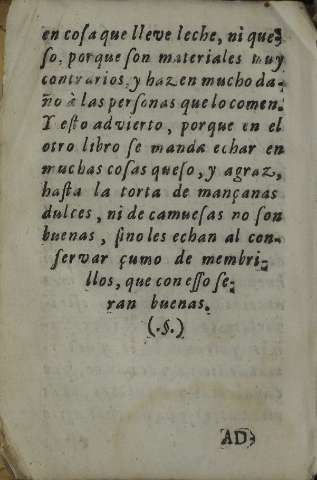 en coſa que lleve leche, ni que-
ſo, porque ſon materiales muy
contrarios, y hazen mucho da-
ño à las perſonas que lo comen.
Y eſto advierto, porque en el
otro libro ſe manda echar en
muchas coſas queſo, y agraz,
haſta la torta de mançanas
dulces, ni de camueſas no ſon
buenas, ſino les echan al con-
ſervar çumo de membri-
llos, que con eſſo ſe-
ran buenas.
(.§.)
AD-